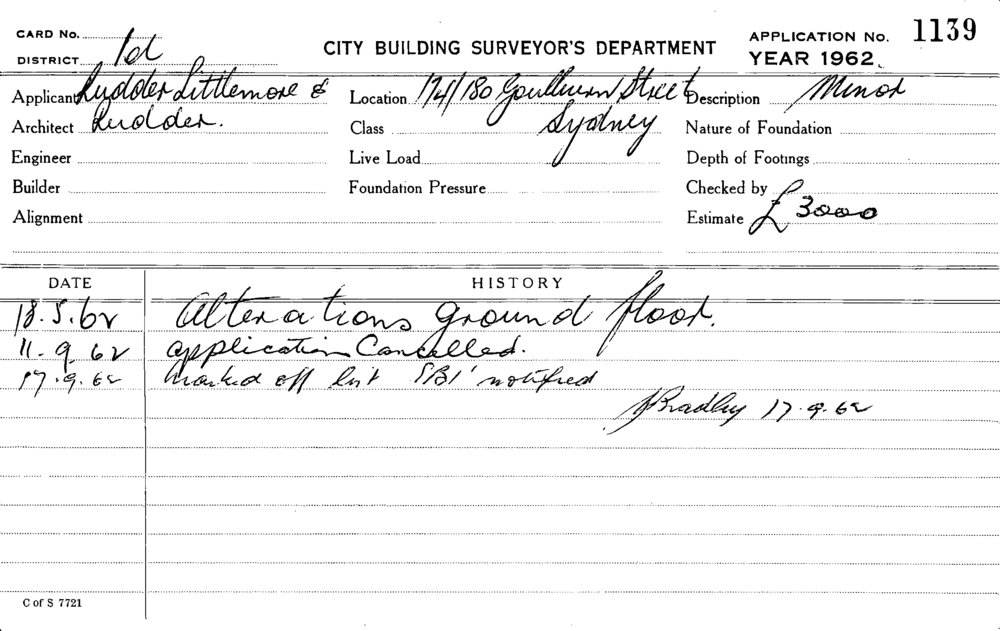 CARD No.
DISTRICT 1d
CITY BUILDING SURVEYOR'S DEPARTMENT
APPLICATION No. 1139
YEAR 1962
Applicant Rudder Littlemore &
Architect Rudder.
Engineer
Builder
Alignment
Location 174/180 Goulburn Street
Class Sydney
Live Load
Foundation Pressure
Description Minor
Nature of Foundation
Depth of Footings
Checked by
Estimate £3000
DATE HISTORY
18.5.62 Alterations ground floor.
11.9.62 application Cancelled.
17.9.62 Marked off list notified
Bradley 17.9.62
C of S 7721